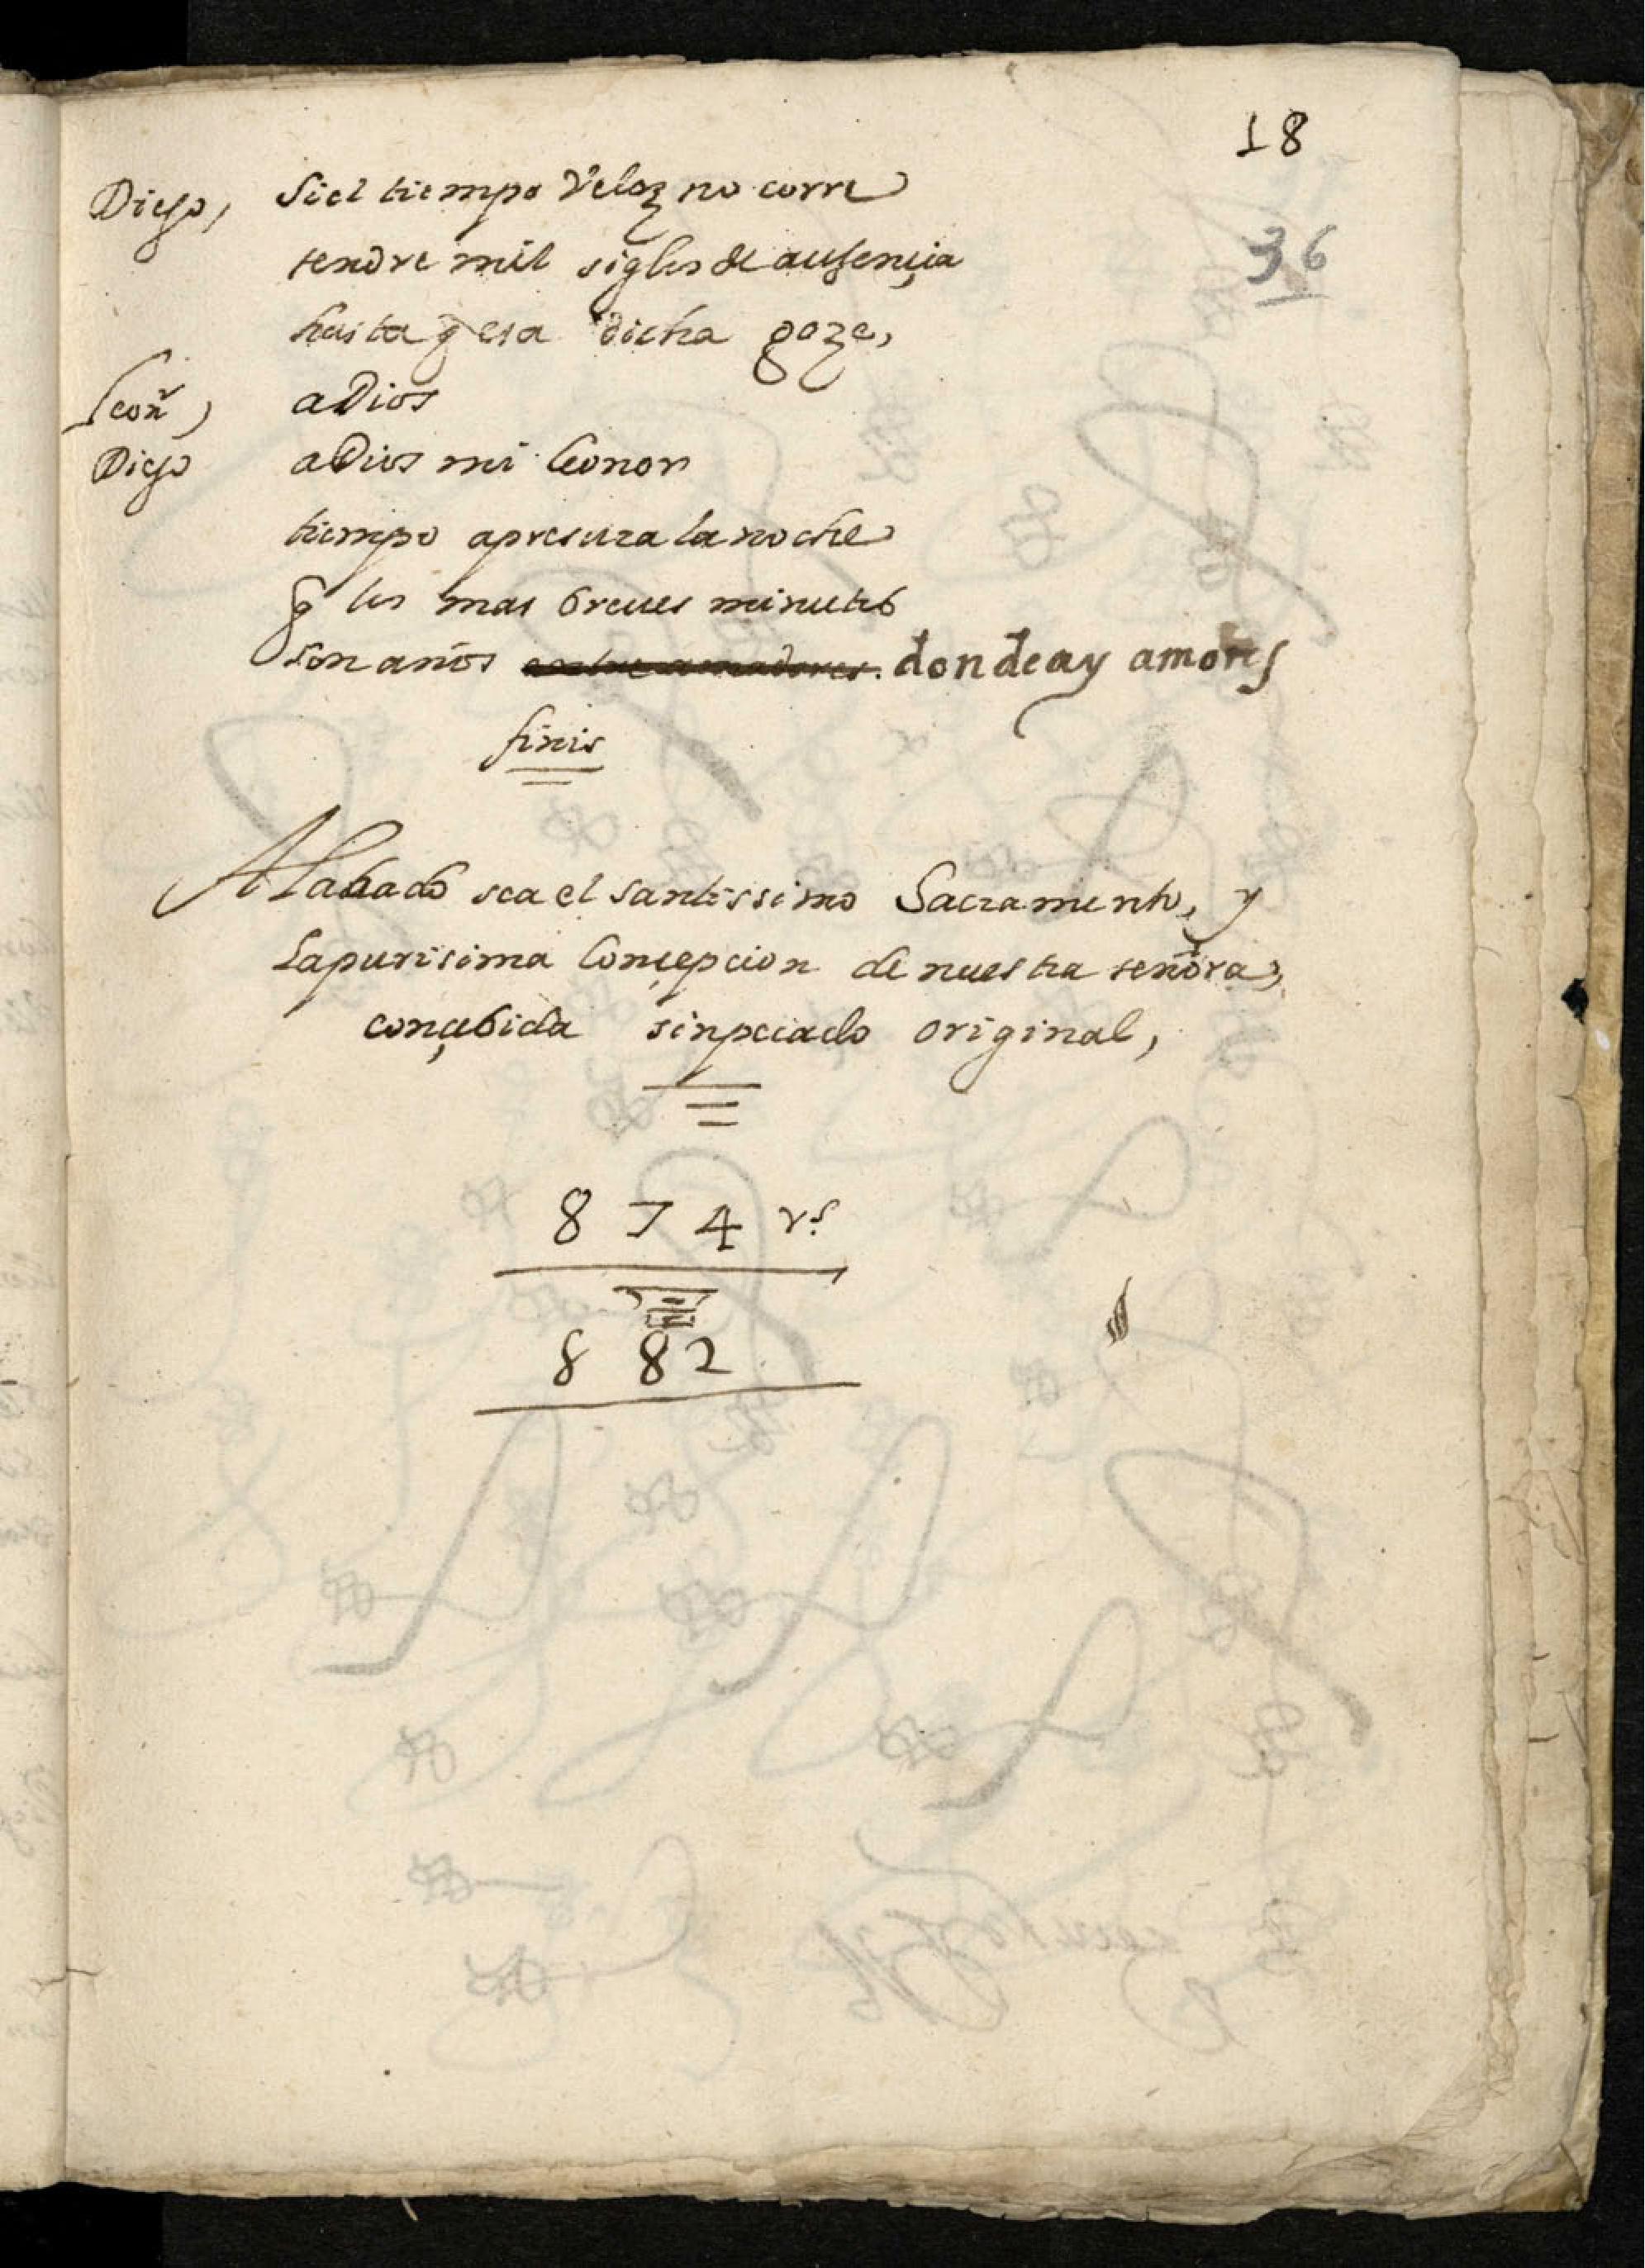 18
36
Diego, Si el tiempo Veloz no corre
tendre mil siglos de ausençia
hasta q̃ esa dicha goze,
Leonr, a Dios
Diego a Dios mi Leonor
tiempo apresura la noche
q̃ los mas breues minutos
son años entre amadores. donde ay amores
finis
Alabado sea el santissimo Sacramento, y
la purisima Conçepcion de nuestra señora,
conçebida sin pecado original,
874 vs.
882